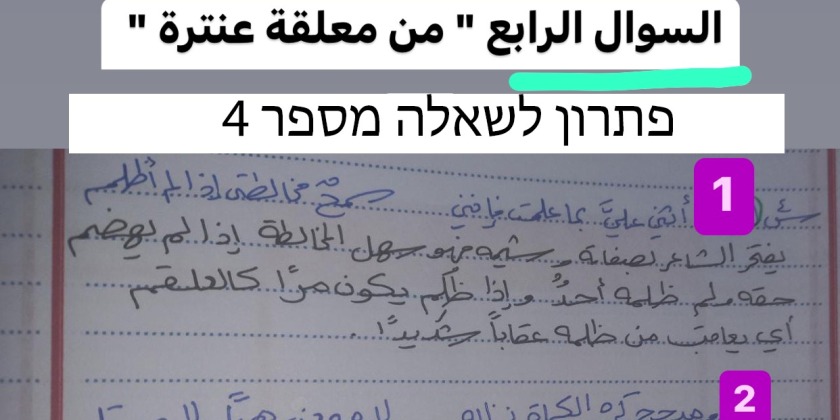 السوال الرابع " من معلقة عنترة "
פתרון לשאלה מספר 4
1
أثني عليَّ بما علمت فإنني سمحٌ مخالطتي إذا لم أظلم
يفتخر الشاعر بصفاته و شيمه فهو سهل المخالطة إذا لم يهضم
حقه ولم يظلمه أحدٌ وإذا ظُلِم يكون مرًّا كالعلقم
أي يعاقب من ظلمه عقاباً شديدًا.
2
مدجج كره الكماة نزاله